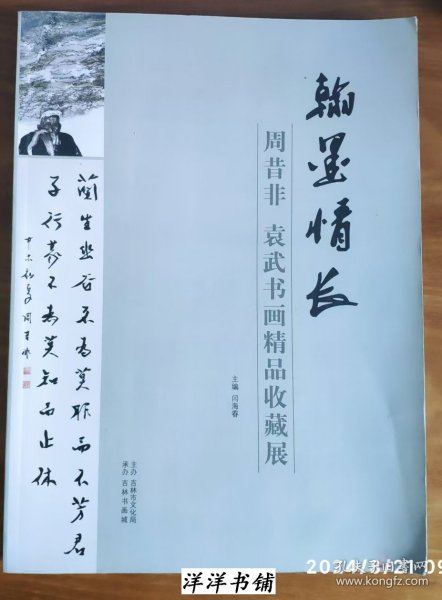 翰墨情长
周昔非 袁武书画精品收藏展
主编 闫海春
主办 吉林市文化局
承办 吉林书画城
兰生幽谷不为莫服而不芳君
子行义不为莫知而止休
洋洋书铺
2024/3/21 09
孔夫子旧书网
www.kongfz.com